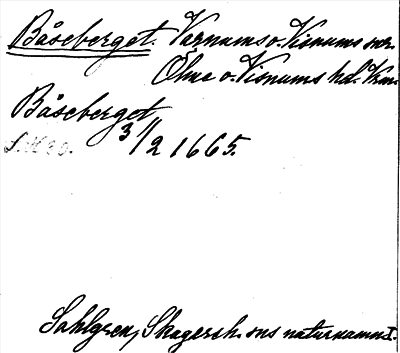 Båseberget. Varnums o. Visnums snr.
Ölme o. Visnums hd. Vrm.
Båseberget
3/2 1665.
Sahlgren, Skagersh. sns naturnamn I.